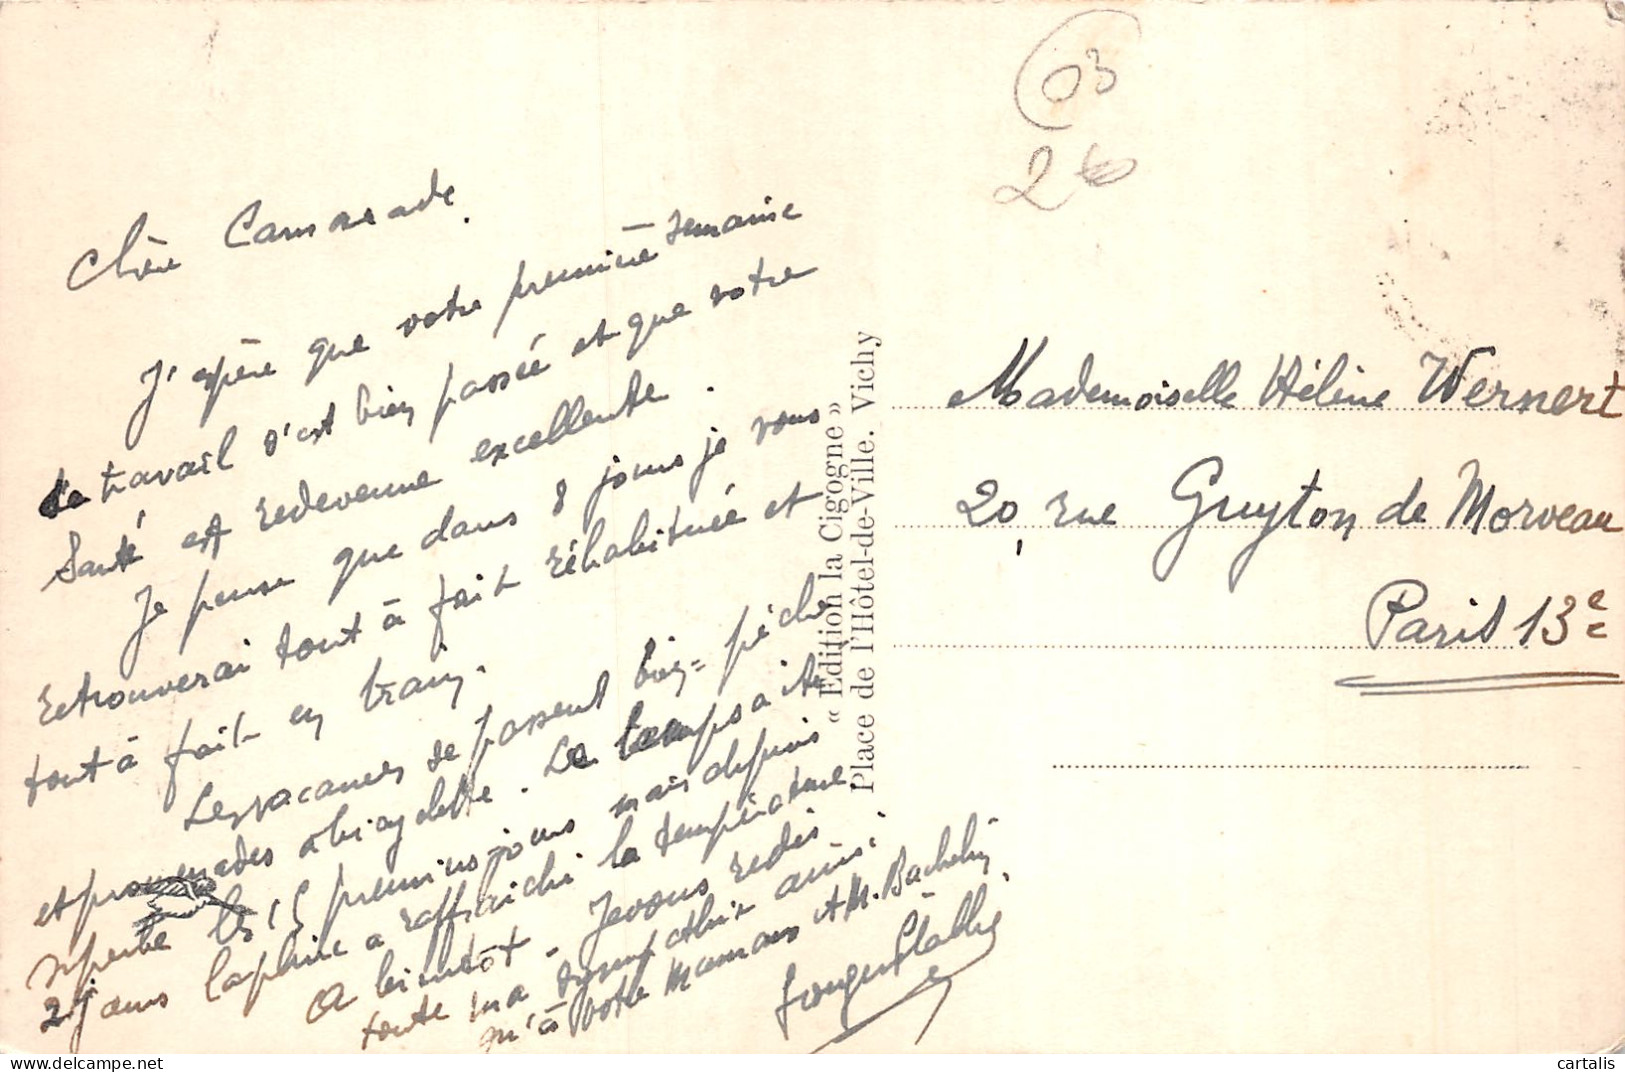 03
26
Chère Camarade.
J'espère que votre première semaine
de travail s'est bien passée et que votre
santé est redevenue excellente.
Je pense que dans 8 jours je vous
retrouverai tout à fait réhabituée et
tout à fait en train.
Les vacances se passent bien = pêche
et promenades à bicyclette. Le temps a été
superbe les 15 premiers jours mais depuis
2 jours la pluie a raffraichi la température
A bientôt. Je vous redis
toute ma sympathie ainsi
qu'à votre Maman et M. Bachelin
« Edition la Cigogne »
Place de l'Hôtel-de-Ville. Vichy
Mademoiselle Hélène Wernert
20, rue Guyton de Morveau
Paris 13e
cartalis